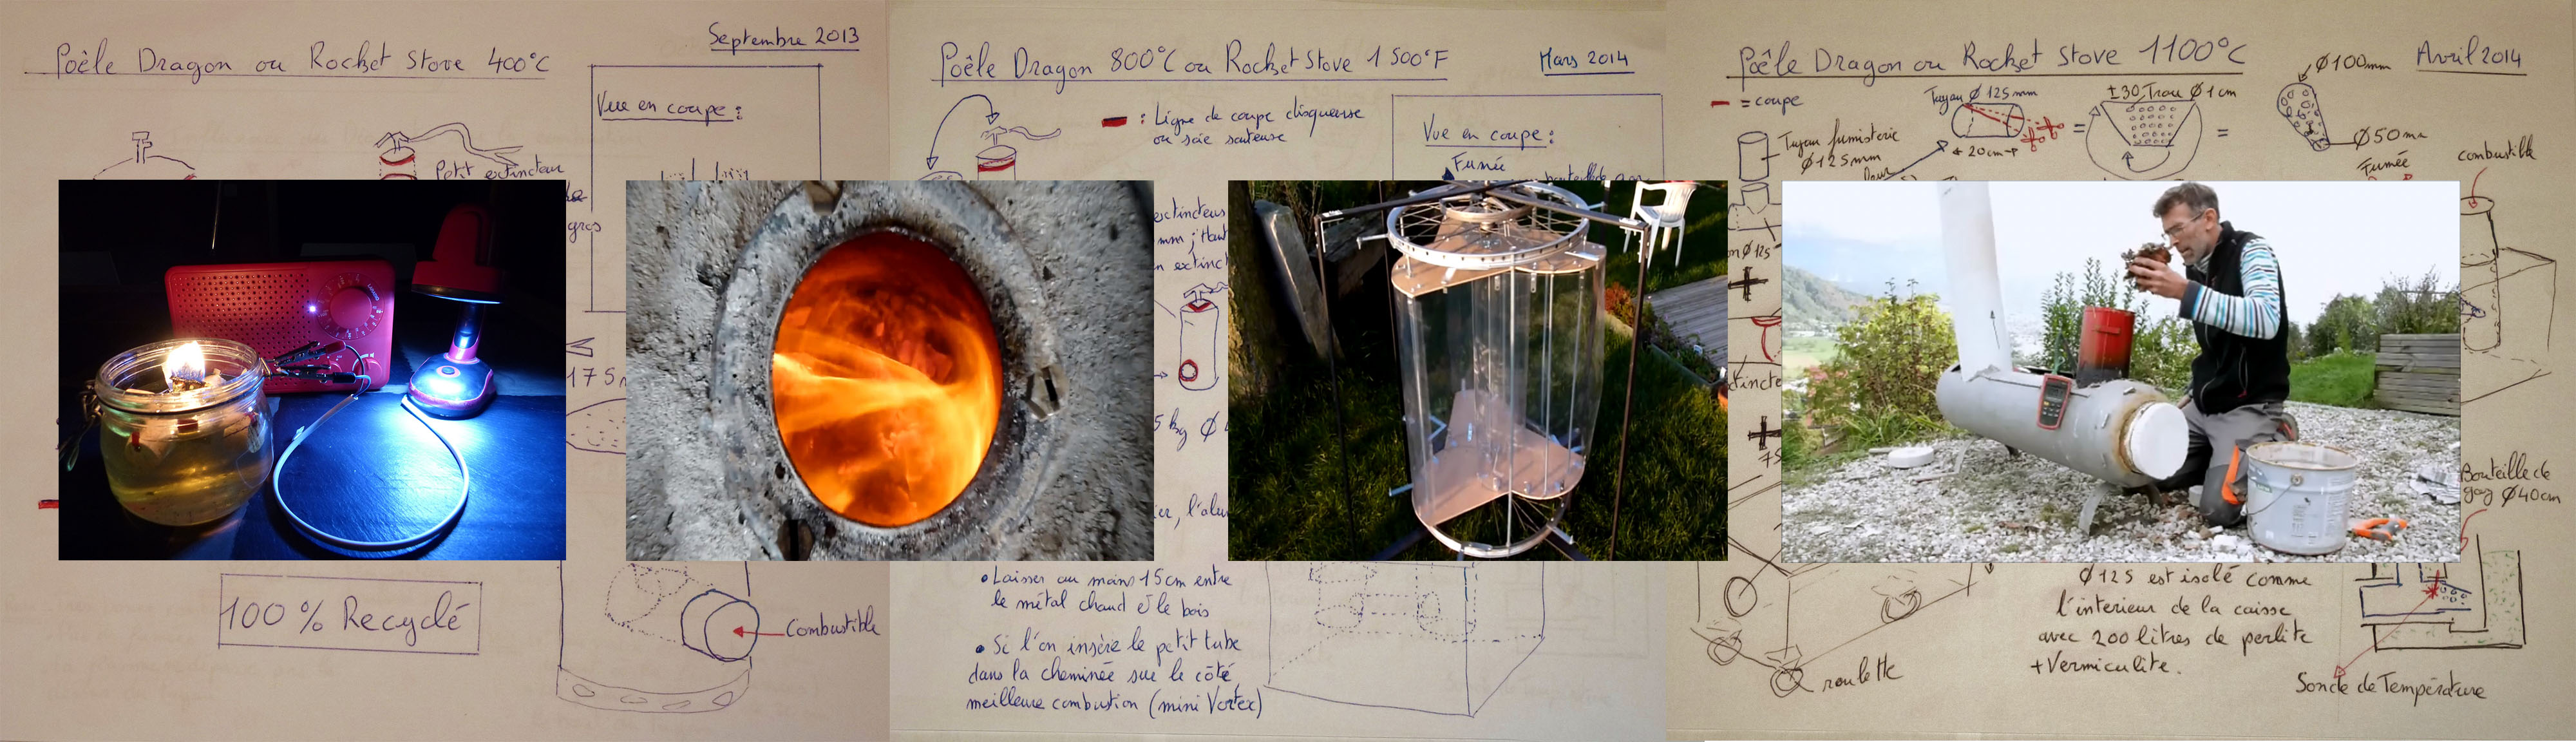 Poêle Dragon ou Rocket Stove 400°C
Septembre 2013
Vue en coupe :
Petit extincteur
100 % Recyclé
Combustible
Poêle Dragon 800°C ou Rocket Stove 1 500°F
Mars 2014
: Ligne de coupe disqueuse
ou scie sauteuse
Vue en coupe :
Fumée
• Laisser au moins 15cm entre
le métal chaud et le bois
• Si l'on insère le petit tube
dans la cheminée sur le côté,
meilleure combustion (mini Vortex)
Poêle Dragon ou Rocket Stove 1100°C
Avril 2014
= coupe
Tuyau Ø 125mm
20cm
±30 Trou Ø 1cm
=
=
Ø100mm
Ø50mm
Tuyau fumisterie
Ø125mm
Fumée
combustible
Bouteille de
gaz Ø40cm
Ø125 est isolé comme
l'interieur de la caisse
avec 200 litres de perlite
+Vermiculite.
roulette
Sonde de Température